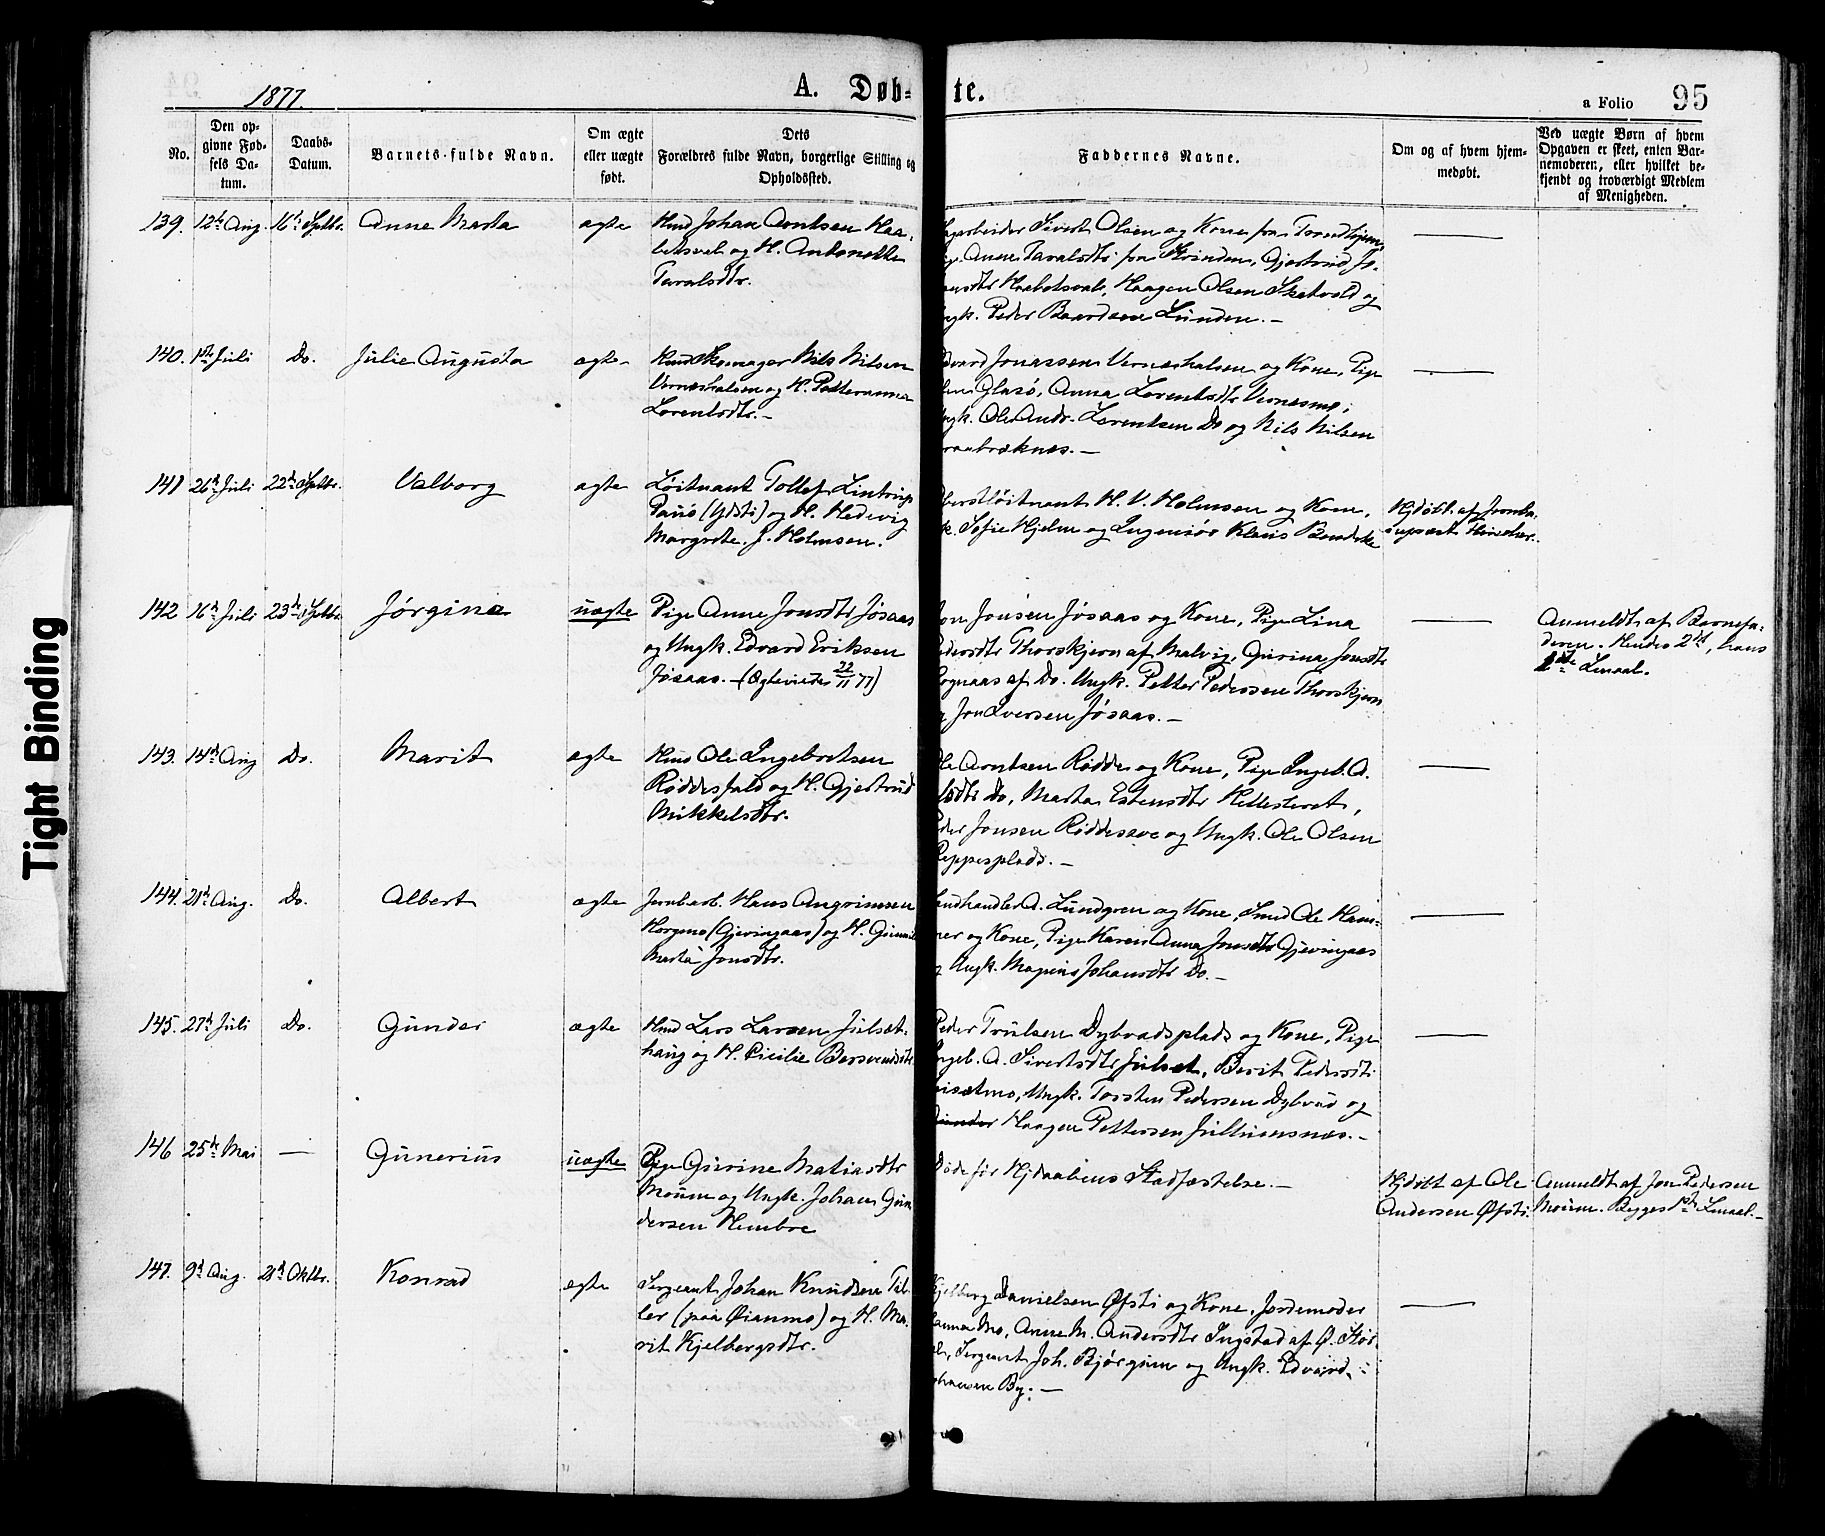 Tight Binding
1877.
A. Døb-
te.
a Folio 95
No.
Den op-
givne Fød-
sels Da-
tum.
Daabs-
Datum.
Barnets fulde Navn.
Om ægte
eller uægte
født.
Dets
Forældres fulde Navn, borgerlige Stilling og
Opholdssted.
Faddernes Navne.
Om og af hvem hjem-
medøbt.
Ved uægte Børn af hvem
Opgaven er skeet, enten Bar-
nemoderen, eller hvilket be-
kjendt og troværdigt Medlem
af Menigheden.
139. 12te Aug. 16de Septbr. Anne Marta ægte
Hmd Johan Arntsen Haa-
betsval og H. Antonette
Taralsdtr.
Sivert Olsen og Kone fra Trondhjem,
Anne Taralsdtr fra Strinden, Gjertrud Jo-
Haabetsval, Haagen Olsen Skatvold og
Ungk. Peder Baardsen Lunden. —
140. 1ste Juli Do. Julie Augusta ægte
Hmd Skomager Nils Nilsen
Verneshalsen og H. Petternanna
Lorentsdtr. —
Edvard Jonassen Verneshalsen og Kone, Pige
Glasø, Anna Lorentsdtr Vernesmo,
Ungk. Ole Andr. Lorentsen Do og Nils Nilsen
141 26de Juli 22de Septbr. Valborg ægte
Løitnant Tollef Lintrup
Paus (Ydsti) og H. Hedevig
Margrete J. Holmsen.
Oberstløitnant H. V. Holmsen og Kone,
Sofie Hjelm og Ingeniør Klaus Bendeke
Hjdøbt af Jernba-
142 16de Juli 23de Septbr Jørgine uægte
Pige Anne Jonsdtr Jøsaas
og Ungk. Edvard Eriksen
Jøsaas. — (Ægteviede 22/11 77)
Jon Jonsen Jøsaas og Kone, Pige Lina
Pedersdtr Thorskjern af Malvig, Gurina Jonsdtr
af Do. Ungk. Petter Pedersen Thorskjern
Jon Iversen Jøsaas. —
Anmeldt af Barnefa-
deren. Hendes 2det, hans
1ste Leiemaal.
143. 14de Aug Do. Marit ægte
Hmd Ole Ingebretsen
Røddesfald og H. Gjertrud
Mikkelsdtr.
Ole Arntsen Rødde og Kone, Pige Ingeb. A.
Do, Marta Estensdtr Hellesteret,
Peder Jonsen Røddesave og Ungk. Ole Olsen
144. 21de Aug. Do. Albert ægte
Jernbarb. Hans Angrimsen
Horgmo (Gjevingaas) og H. Gunnil
Marta Jonsdtr.
Landhandler A. Lundgren og Kone, Smed Ole Ham-
mer og Kone, Pige Karen Anna Jonsdtr Gjevingaas
Ungk. Johansdtr Do. —
145. 27de Juli Do. Gunder ægte
Hmd Lars Larsen Julset-
haug og H. Cicilie Barsvendsdtr
Peder Trulsen Dybvadsplads og Kone, Pige
Ingeb. A. Sivertsdtr Julset, Berit Pedersdtr
Ungk. Torsten Pedersen Dybvad og
Gunder Haagen Pettersen
146 25de Mai — Gunerius uægte
Pige Gurine Matiasdtr
Mourm og Ungk. Johan Gun-
dersen Hembre
Døde før Hjdaabens Stadfæstelse. —
Hjdøbt af Ole
Andersen Øfsti.
Anmeldt af Jon Pedersen
Begges 1ste Leiemaal. —
147. 9de Aug. 21de Oktbr. Konrad ægte
Sergeant Johan Knudsen Til-
ler (paa Øianmo) og H. Ma-
rit Kjelbergsdtr.
Kjelberg Danielsen Øfsti og Kone, Jordemoder
Hanna Mo, Anne M. Andersdtr Ingstad af Ø. Stør-
Sergeant Joh. Bjørgum og Ungk. Edvard
Johansen By. —